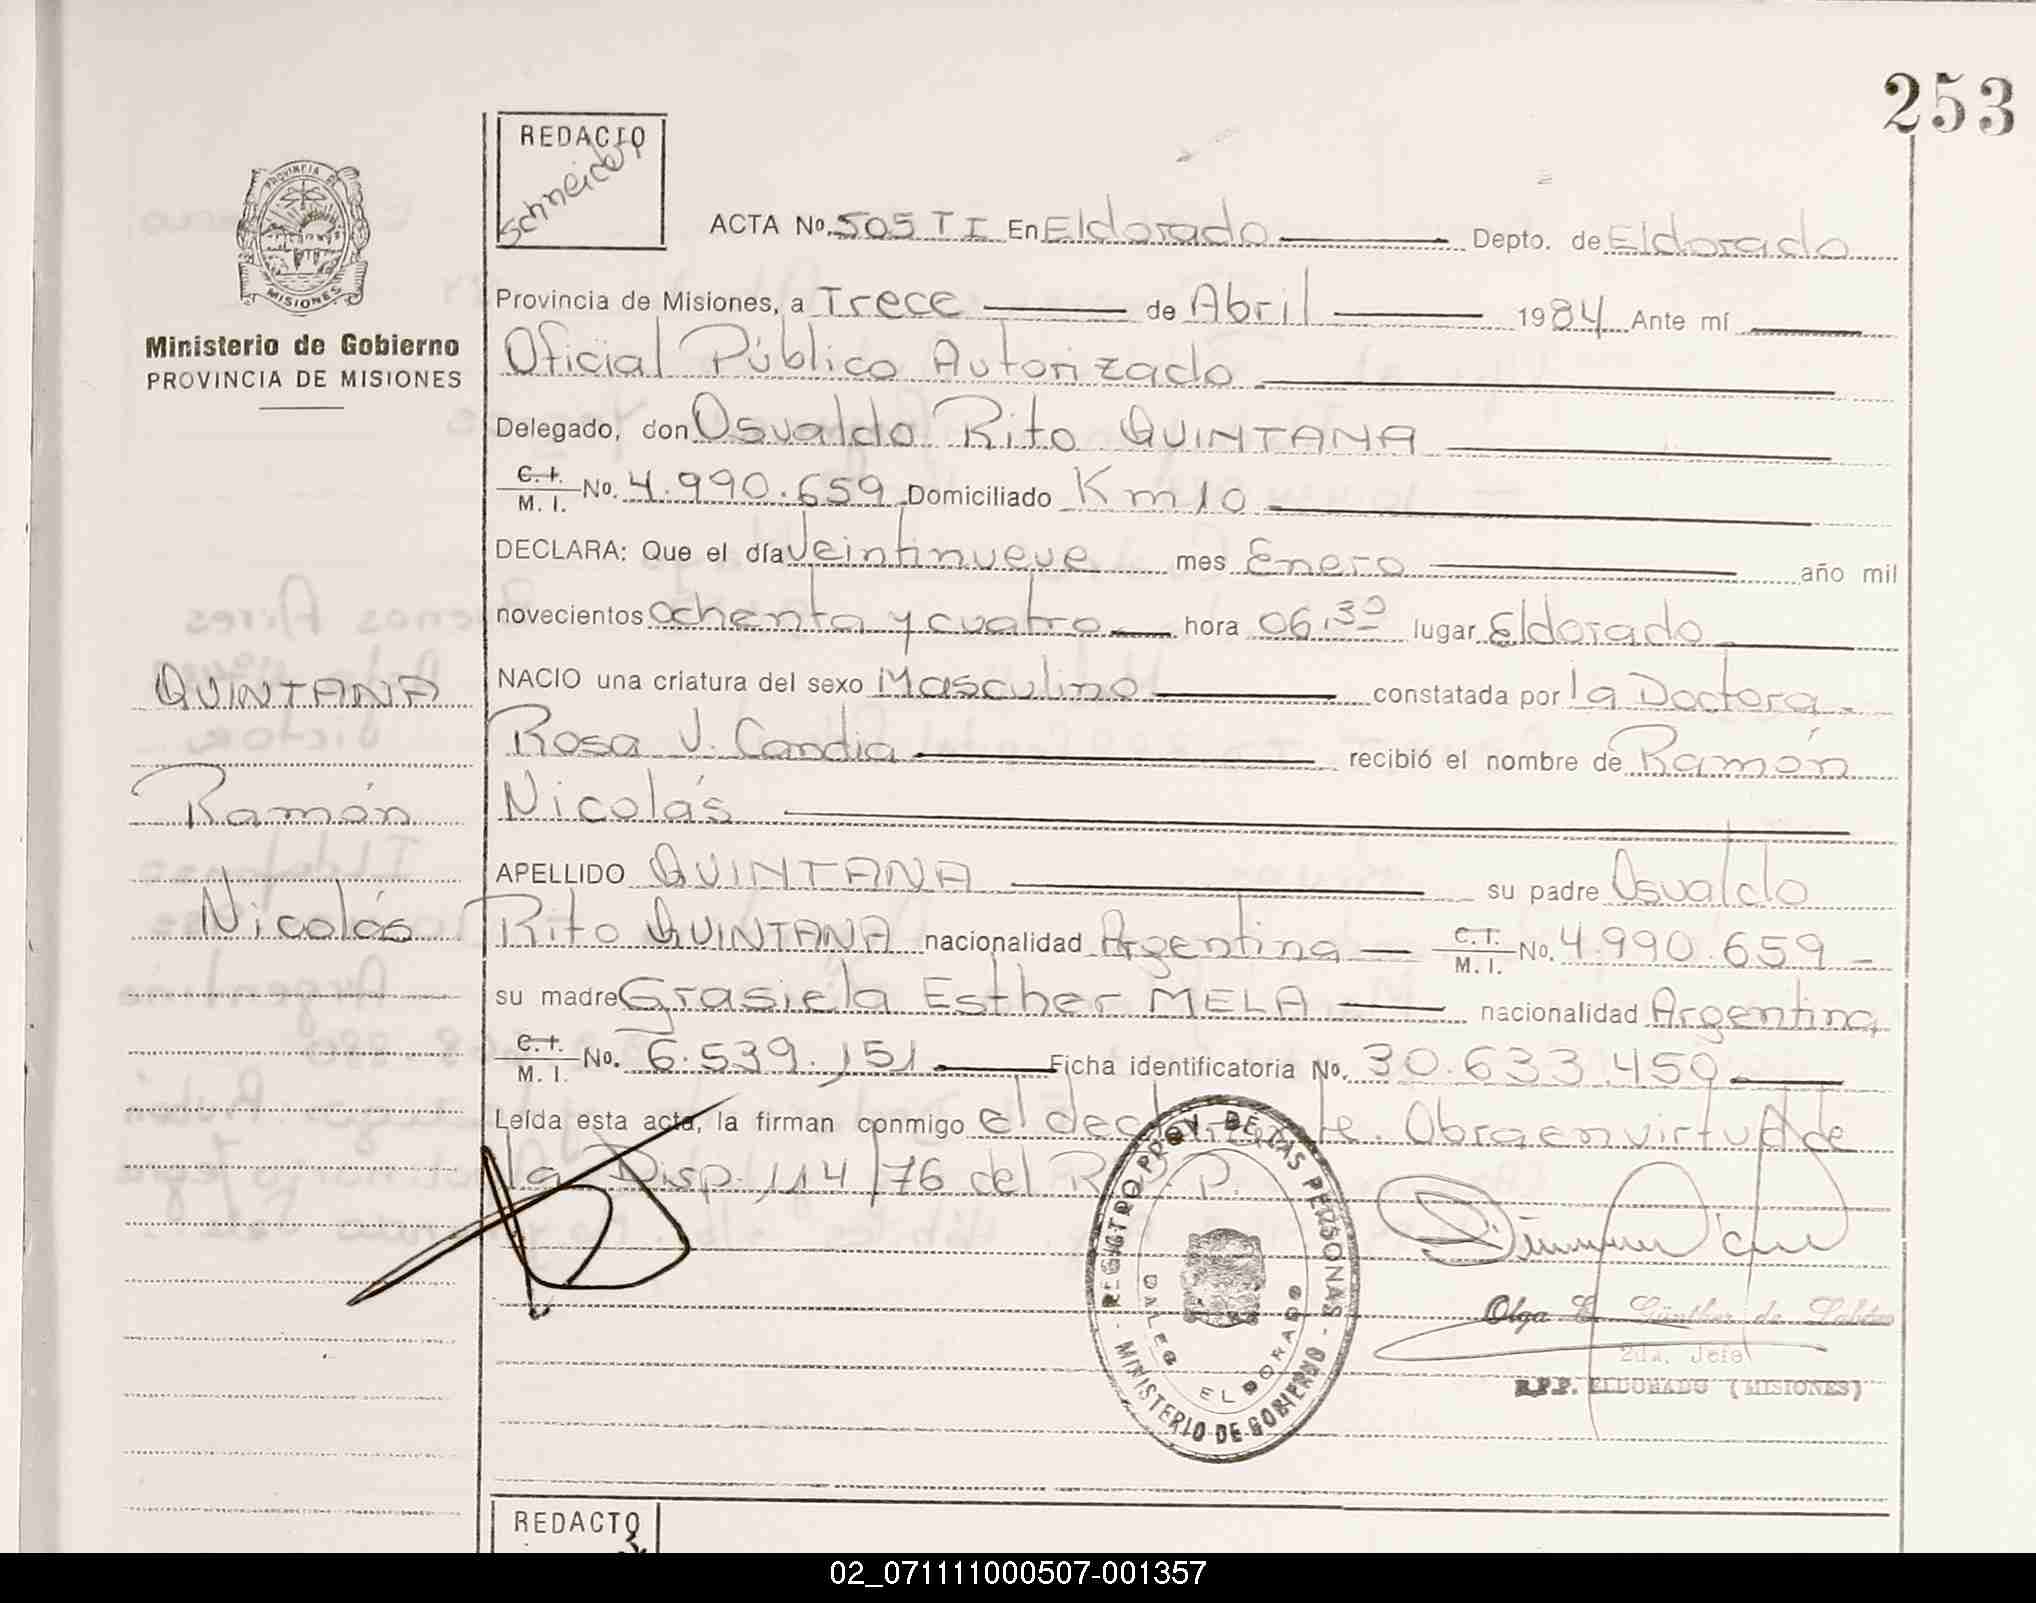 253
REDACTO
Schneider
PROVINCIA DE
MISIONES
Ministerio de Gobierno
PROVINCIA DE MISIONES
ACTA No. 505 T I En Eldorado Depto. de Eldorado
Provincia de Misiones, a Trece de Abril 1984 Ante mí
Oficial Público Autorizado
Delegado, don Osvaldo Rito QUINTANA
C.I. M. I. No. 4.990.659 Domiciliado Km 10
DECLARA: Que el día Veintinueve mes Enero año mil
novecientos ochenta y cuatro hora 06,30 lugar Eldorado
NACIO una criatura del sexo Masculino constatada por la Doctora
Rosa J. Candia recibió el nombre de Ramón
Nicolás
APELLIDO QUINTANA su padre Osvaldo
Rito QUINTANA nacionalidad Argentina C.I. M. I. No. 4.990.659
su madre Grasiela Esther MELA nacionalidad Argentina
C.I. M. I. No. 6.539.151 Ficha identificatoria No. 30.633.459
Leída esta acta, la firman conmigo el declarante. Obra en virtud de
la Disp. 114/76 del R.P.P.
QUINTANA
Ramón
Nicolás
REGISTRO PROV. DE LAS PERSONAS
MINISTERIO DE GOBIERNO
ELDORADO
Olga E. Günther de
2da. Jefe
R.P.P. ELDORADO (MISIONES)
REDACTO
02_071111000507-001357